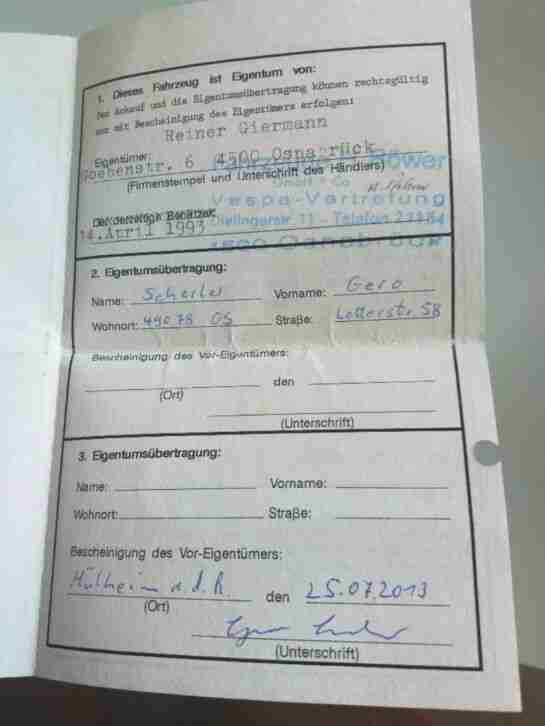 1. Dieses Fahrzeug ist Eigentum von:
Der Ankauf und die Eigentumsübertragung können rechtsgültig
nur mit Bescheinigung des Eigentümers erfolgen:
Reiner Giermann
Eigentümer:
Goebenstr. 6 4500 Osnabrück
Röwer
(Firmenstempel und Unterschrift des Händlers)
GmbH + Co
Vespa-Vertretung
Der derzeitige Besitzer:
Dielingerstr. 11 - Telefon
14.April 1993
4500 Osnabrück
2. Eigentumsübertragung:
Name: Vorname: Gero
Wohnort: 49078 OS Straße: Lotterstr. 58
Bescheinigung des Vor-Eigentümers:
den
(Ort)
(Unterschrift)
3. Eigentumsübertragung:
Name: Vorname:
Wohnort: Straße:
Bescheinigung des Vor-Eigentümers:
Mülheim a.d.R. den 25.07.2013
(Ort)
(Unterschrift)